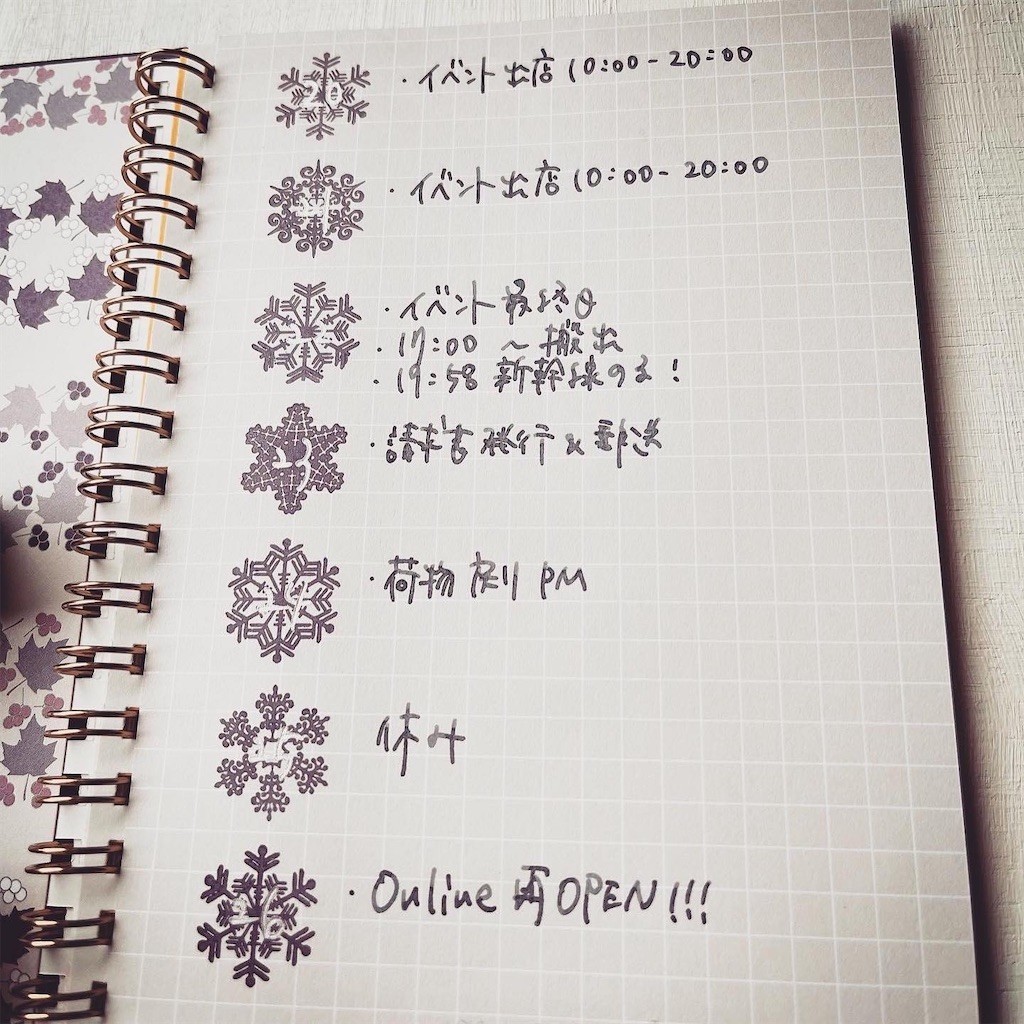 20
・イベント出店 10:00-20:00
21
・イベント出店 10:00-20:00
・イベント最終日
・17:00 〜 搬出
・19:58 新幹線のる!
・請求書発行&郵送
24
・荷物戻り PM
25
休み
26
・Online 再OPEN!!!